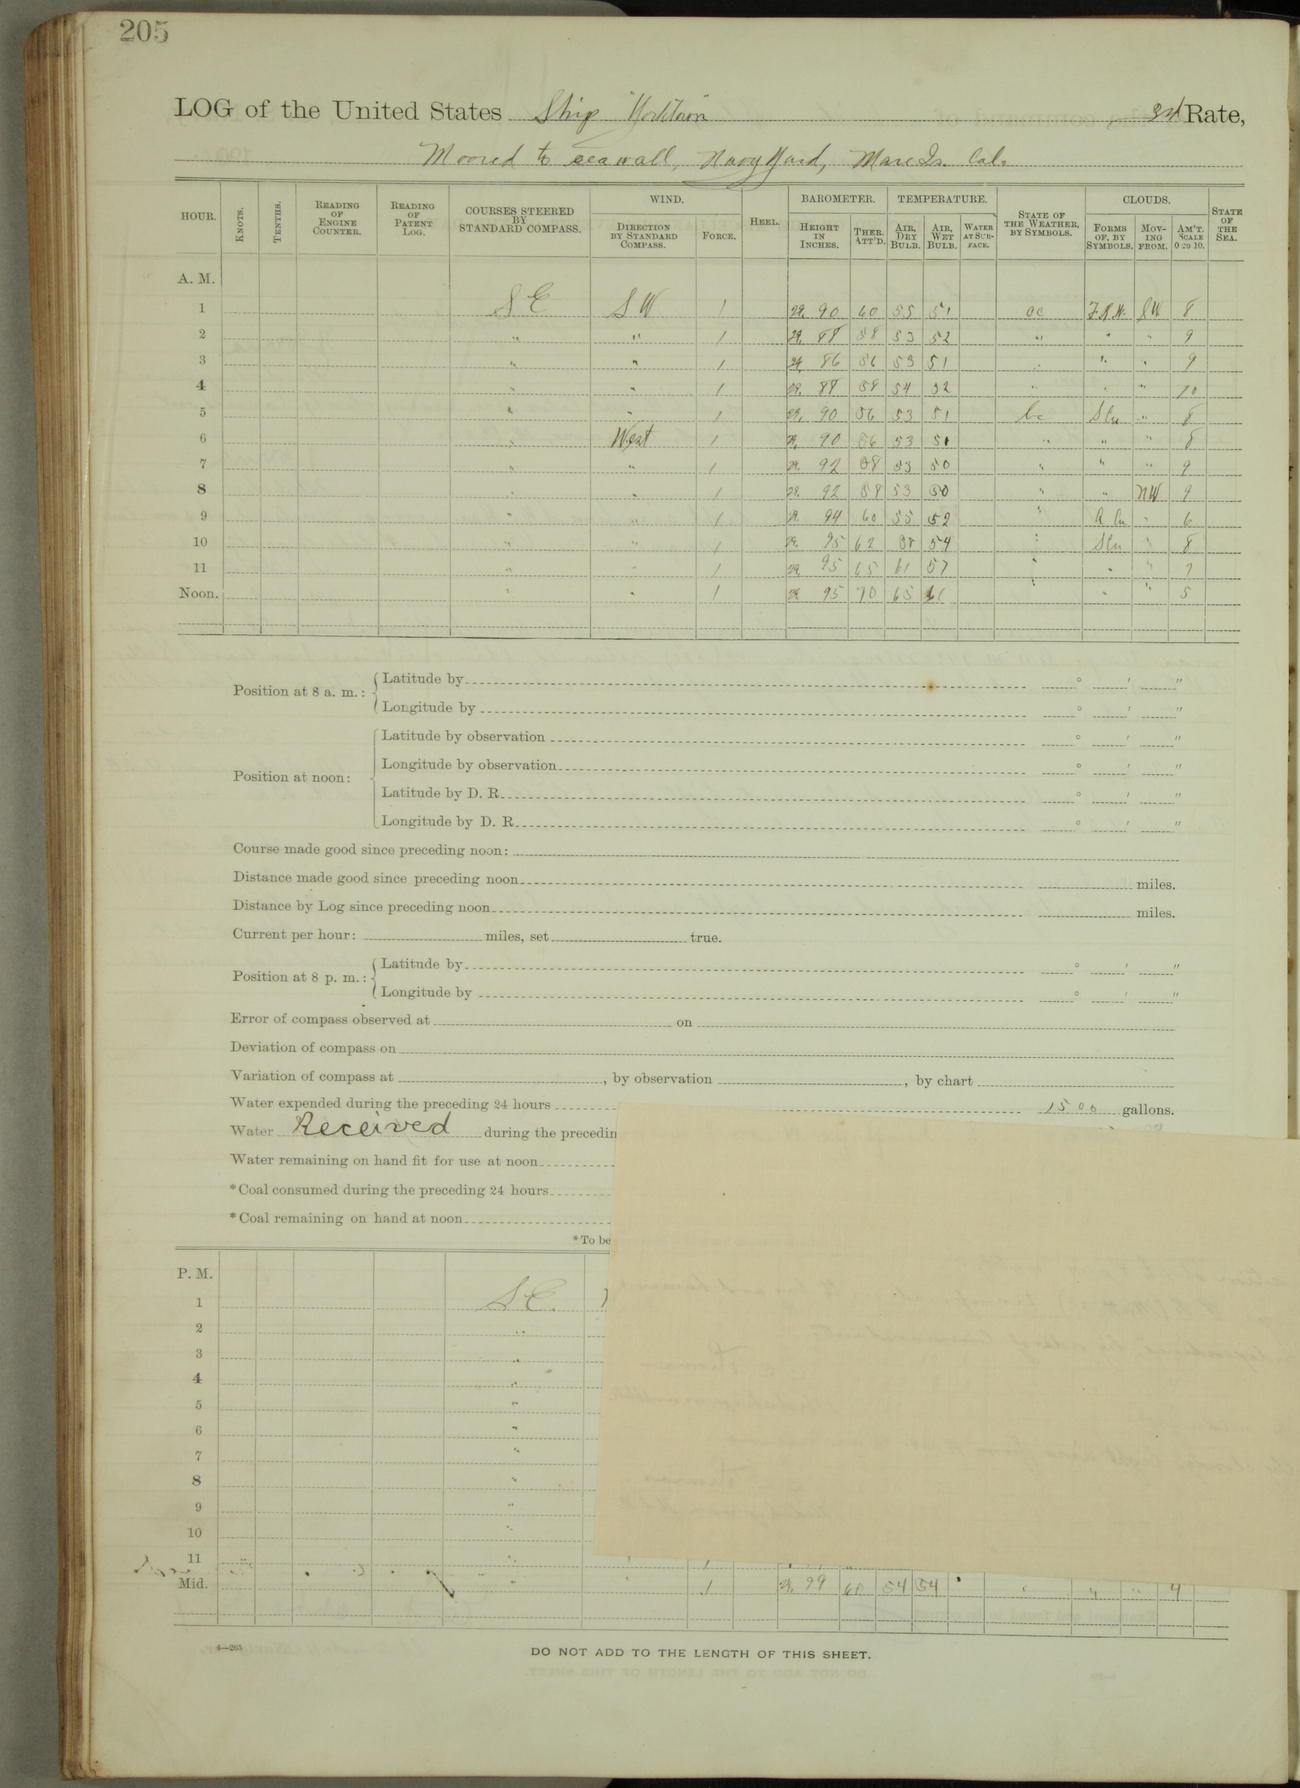 205
LOG of the United States Ship Yorktown 3d Rate,
Moored to sea wall, Navy Yard, Mare Is. Cal.
HOUR. KNOTS. TENTHS. READING OF ENGINE COUNTER. READING OF PATENT LOG. COURSES STEERED BY STANDARD COMPASS. WIND. DIRECTION BY STANDARD COMPASS. FORCE. HEEL. BAROMETER. HEIGHT IN INCHES. THER. ATT'D. TEMPERATURE. AIR, DRY BULB. AIR, WET BULB. WATER AT SURFACE. STATE OF THE WEATHER, BY SYMBOLS. CLOUDS. FORMS OF, BY SYMBOLS. MOVING FROM. AM'T. SCALE 0 TO 10. STATE OF THE SEA.
A. M.
1 S E S W 1 29. 90 60 55 51 oc SW 8
2 " " 1 29. 88 58 53 52 " " " 9
3 " " 1 29. 86 56 53 51 " " " 9
4 " " 1 29. 88 58 54 52 " " " 10
5 " " 1 29. 90 56 53 51 bc Scu " 8
6 " West 1 29. 90 56 53 51 " " " 8
7 " " 1 29. 92 58 53 50 " " " 9
8 " " 1 29. 92 58 53 50 " " NW 9
9 " " 1 29. 94 60 55 52 " A Cu " 6
10 " " 1 29. 95 62 58 54 " Scu " 8
11 " " 1 29. 95 65 61 57 " " " 7
Noon. " " 1 29. 95 70 65 61 " " " 5
Position at 8 a. m.: Latitude by ° ' "
Longitude by ° ' "
Position at noon: Latitude by observation ° ' "
Longitude by observation ° ' "
Latitude by D. R. ° ' "
Longitude by D. R. ° ' "
Course made good since preceding noon:
Distance made good since preceding noon miles.
Distance by Log since preceding noon miles.
Current per hour: miles, set true.
Position at 8 p. m.: Latitude by ° ' "
Longitude by ° ' "
Error of compass observed at on
Deviation of compass on
Variation of compass at , by observation , by chart
Water expended during the preceding 24 hours 1500 gallons.
Water Received during the precedin
Water remaining on hand fit for use at noon
*Coal consumed during the preceding 24 hours
*Coal remaining on hand at noon
*To be
P. M.
1 S E.
2 "
3 "
4 "
5 "
6 "
7 "
8 "
9 "
10 "
11 " " 1
Mid. " " 1 29. 99 60 54 54 " " " 4
4—265
DO NOT ADD TO THE LENGTH OF THIS SHEET.